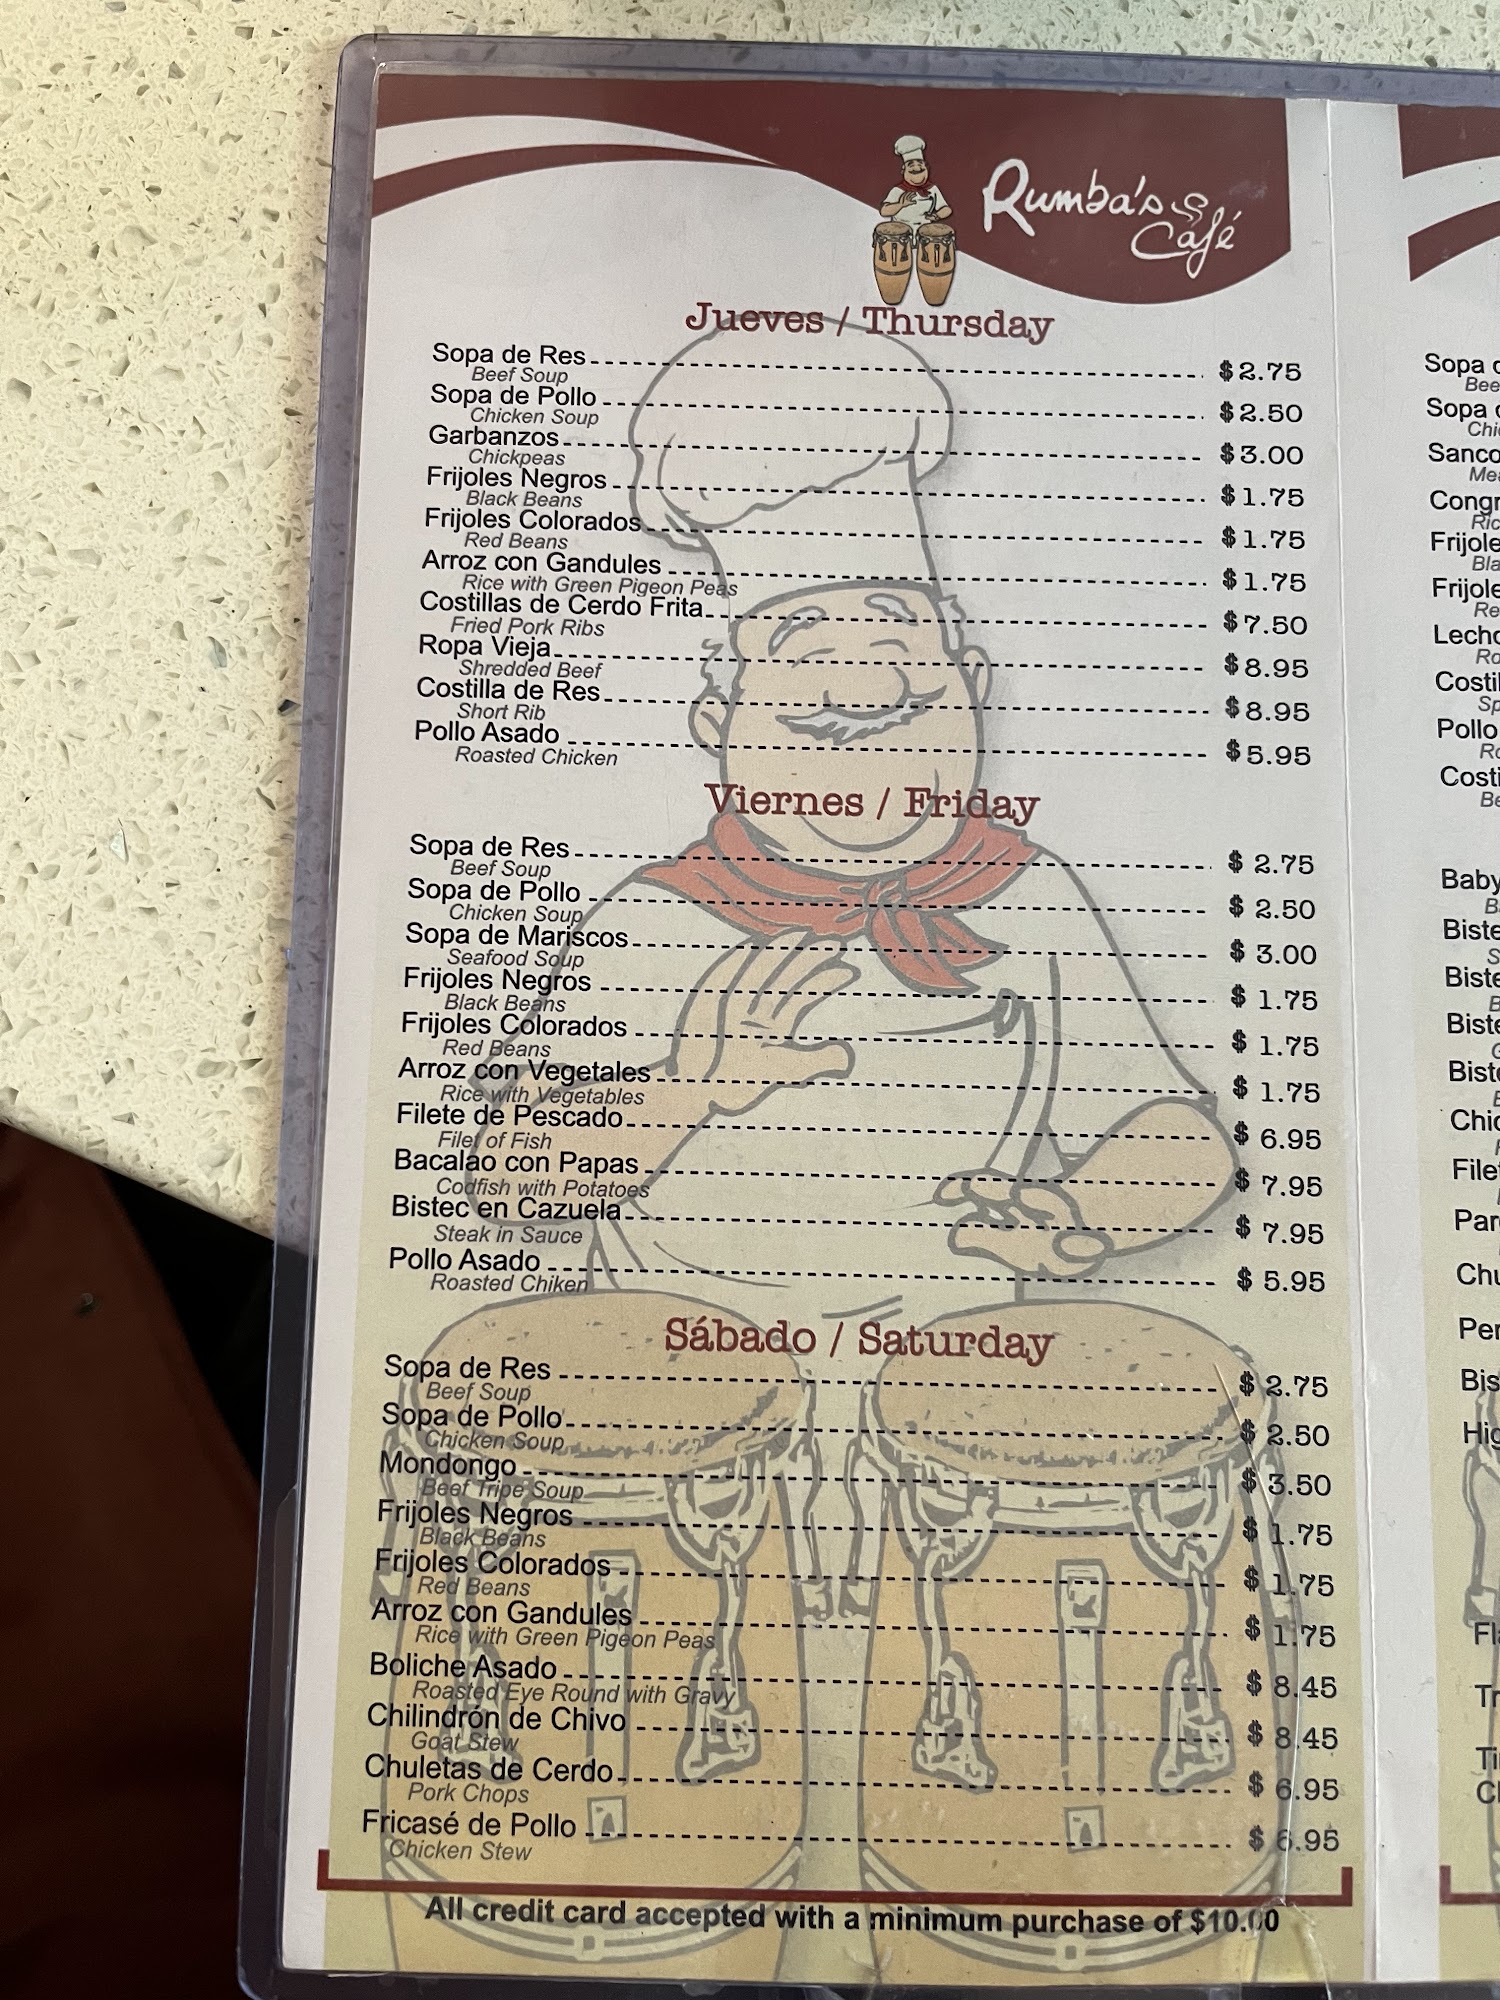 Rumba's
Café
Jueves / Thursday
Sopa de Res $2.75
Beef Soup
Sopa de Pollo $2.50
Chicken Soup
Garbanzos $3.00
Chickpeas
Frijoles Negros $1.75
Black Beans
Frijoles Colorados $1.75
Red Beans
Arroz con Gandules $1.75
Rice with Green Pigeon Peas
Costillas de Cerdo Frita $7.50
Fried Pork Ribs
Ropa Vieja $8.95
Shredded Beef
Costilla de Res $8.95
Short Rib
Pollo Asado $5.95
Roasted Chicken
Viernes / Friday
Sopa de Res $ 2.75
Beef Soup
Sopa de Pollo $ 2.50
Chicken Soup
Sopa de Mariscos $ 3.00
Seafood Soup
Frijoles Negros $ 1.75
Black Beans
Frijoles Colorados $ 1.75
Red Beans
Arroz con Vegetales $ 1.75
Rice with Vegetables
Filete de Pescado $ 6.95
Filet of Fish
Bacalao con Papas $ 7.95
Codfish with Potatoes
Bistec en Cazuela $ 7.95
Steak in Sauce
Pollo Asado $ 5.95
Roasted Chiken
Sábado / Saturday
Sopa de Res $ 2.75
Beef Soup
Sopa de Pollo $ 2.50
Chicken Soup
Mondongo $ 3.50
Beef Tripe Soup
Frijoles Negros $ 1.75
Black Beans
Frijoles Colorados $ 1.75
Red Beans
Arroz con Gandules $ 1.75
Rice with Green Pigeon Peas
Boliche Asado $ 8.45
Roasted Eye Round with Gravy
Chilindrón de Chivo $ 8.45
Goat Stew
Chuletas de Cerdo $ 6.95
Pork Chops
Fricasé de Pollo $ 6.95
Chicken Stew
All credit card accepted with a minimum purchase of $10.00
Sopa
Sopa
Pollo
Baby